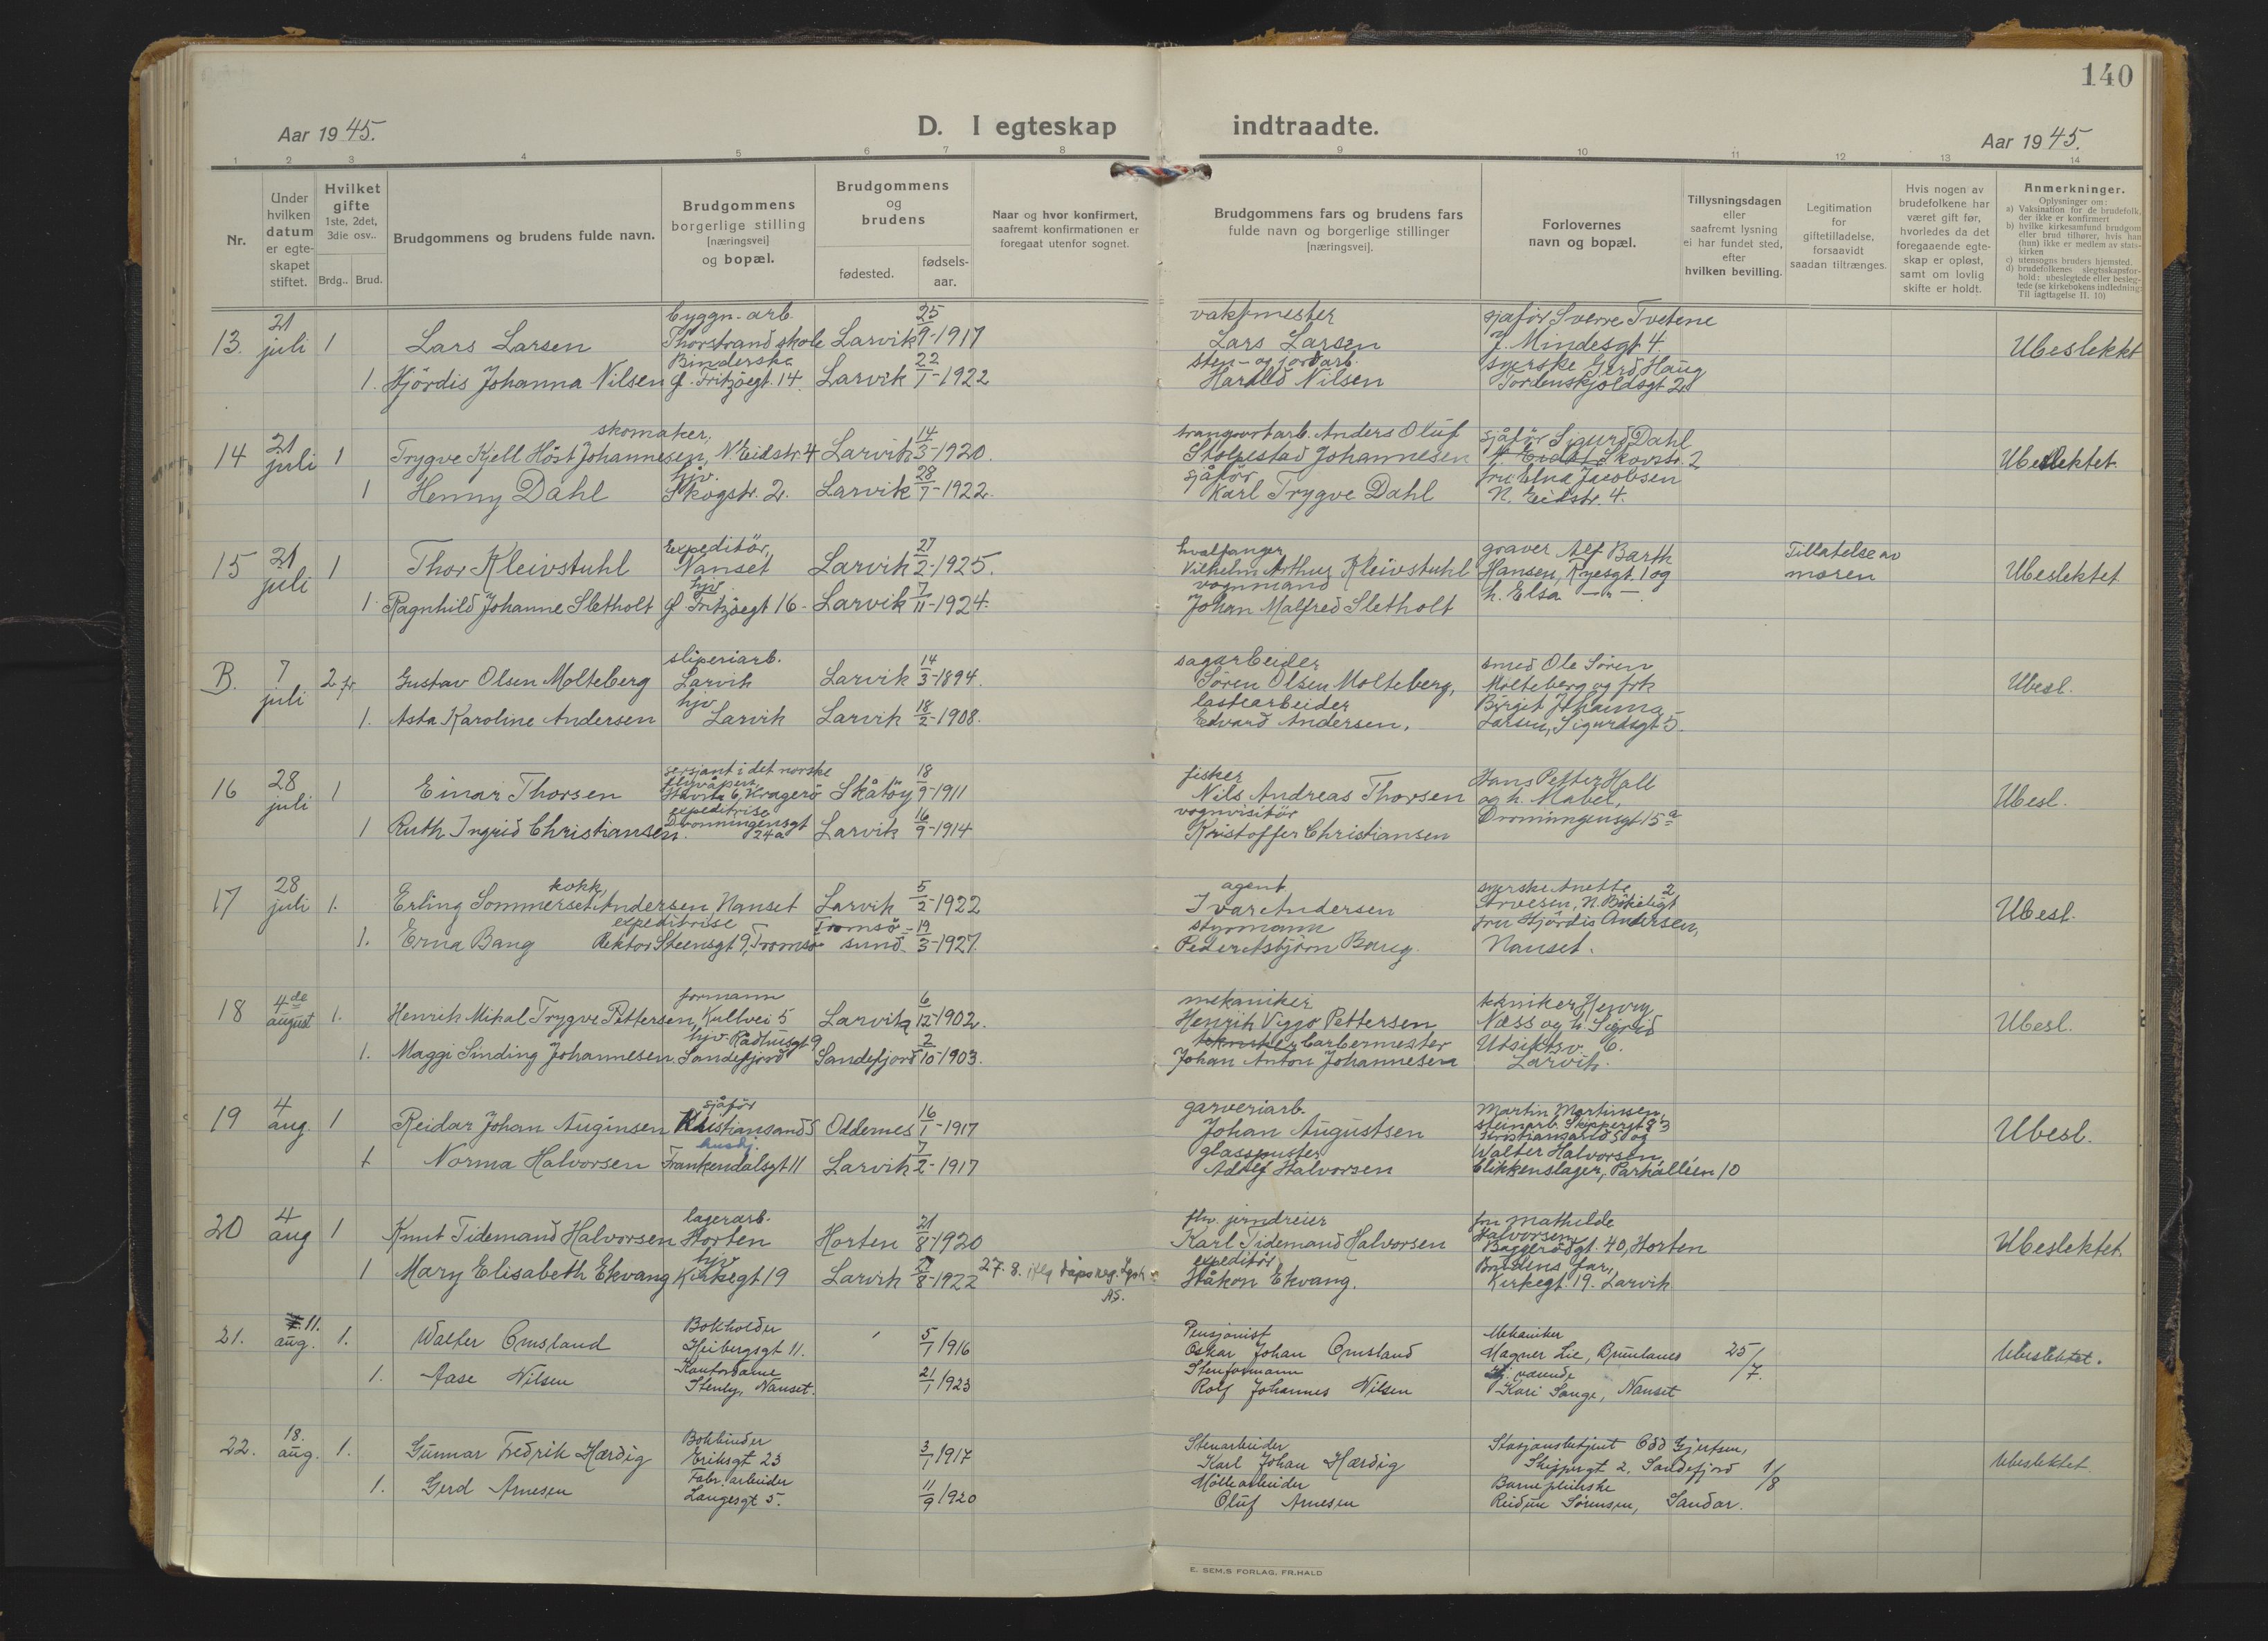 140
Aar 1945.
D. I egteskap indtraadte.
Aar 1945.
1 2 3 4 5 6 7 8 9 10 11 12 13 14
Nr.
Under hvilken datum er egteskapet stiftet.
Hvilket gifte 1ste, 2det, 3die osv..
Brdg.. Brud.
Brudgommens og brudens fulde navn.
Brudgommens borgerlige stilling [næringsvei] og bopæl.
Brudgommens og brudens
fødested. fødsels-aar.
Naar og hvor konfirmert, saafremt konfirmationen er foregaat utenfor sognet.
Brudgommens fars og brudens fars fulde navn og borgerlige stillinger [næringsvei].
Forlovernes navn og bopæl.
Tillysningsdagen eller saafremt lysning ei har fundet sted, efter hvilken bevilling.
Legitimation for giftetilladelse, forsaavidt saadan tiltrænges.
Hvis nogen av brudefolkene har været gift før, hvorledes da det foregaaende egteskap er opløst, samt om lovlig skifte er holdt.
Anmerkninger.
Oplysninger om:
a) Vaksination for de brudefolk, der ikke er konfirmert
b) hvilke kirkesamfund brudgom eller brud tilhører, hvis han (hun) ikke er medlem av statskirken
c) utensogns bruders hjemsted.
d) brudefolkenes slegtsskapsforhold: ubeslegtede eller beslegtede (se kirkebokens indledning: Til iagttagelse II. 10)
13. 21 juli 1 Lars Larsen byggn. arb. Thorstrand skole Larvik 25/9-1917 vaktmester Lars Larsen sjåfør Sverre Tvetene Mindesgt 4 Ubeslektet
1. Hjördis Johanna Nilsen Binderske Ø. Fritzöegt. 14. Larvik 22/1-1922 sten- og jordarb. Harald Nilsen syerske Gerd Haug Tordenskjoldsgt 28
14 21 juli 1 Trygve Kjell Höst Johannesen, skomaker, N. Eidstr. 4 Larvik 14/3-1920. transportarb. Anders Oluf Stolpestad Johannesen sjåför Sigurd Dahl Skovstr. 2 Ubeslektet
1 Henny Dahl hjv. Skogstr. 2. Larvik 28/7-1922. sjåför Karl Trygve Dahl fru Elna Jacobsen N. Eidstr. 4.
15 21 juli 1 Thor Kleivstuhl Expeditör, Nanset Larvik 27/2-1925. hvalfanger Vilhelm Arthur Kleivstuhl graver Alf Barth Hansen, Ryesgt. 1 og Tillatelse av moren Ubeslektet
1. Ragnhild Johanne Sletholt hjv Ø Fritzöegt 16 - Larvik 7/11-1924. vognmand Johan Malfred Sletholt h. Elsa — " —
B. 7 juli 2 fr Gustav Olsen Molteberg sliperiarb. Larvik Larvik 14/3-1894. sagarbeider Sören Olsen Molteberg, smed Ole Sören Molteberg og frk Ubesl.
1. Asta Karoline Andersen hjv Larvik Larvik 18/2-1908. lastearbeider Edvard Andersen. Birgit Johanna Larsen, Sigurdsgt 5.
16 28 juli 1 Einar Thorsen sersjant i det norske flyvåpen, 6, Kragerö Skåtöy 18/9-1911 fisker Nils Andreas Thorsen Hans Petter Hall og h. Mabel, Ubesl.
1 Ruth Ingrid Christiansen. expeditrise Dronningensgt 24a Larvik 16/9-1914 vognvisitör Kristoffer Christiansen Dronningensgt 15a
17 28 juli 1. Erling Sommerset Andersen kokk, Nanset Larvik 5/2-1922 agent Ivar Andersen syerske Anette Arvesen, N. Bökeligt 2 Ubesl.
1. Erna Bang expeditrise Rektor Steensgt 9, Tromsö Tromsö-sund- 19/3-1927. styrmann Peder Asbjörn Bang. fru Hjördis Andersen, Nanset.
18 4de august 1. Henrik Mikal Trygve Pettersen, formann Kullvei 5 Larvik 6/12-1902. mekaniker Henrik Viggo Pettersen tekniker Henry Næss og h. Sigrid Ubesl.
1. Maggi Sinding Johannesen hjv. Rådhusgt 9 Sandefjord Sandefjord 2/10-1903. barbermester Johan Anton Johannesen Utsiktsv. 6. Larvik.
19 4 aug. 1 Reidar Johan Auginsen sjåför Kristiansand S Oddernes 16/1-1917 garveriarb. Johan Augustsen Martin Martinsen, steinarb. Skippergt 83 Kristiansand S og Ubesl.
1 Norma Halvorsen husbj. Frankendalsgt 11 Larvik 7/2-1917 glasspuster Adolf Halvorsen Walter Halvorsen blikkenslager, Parkalléen 10
20 4 aug 1 Knut Tidemand Halvorsen lagerarb. Horten Horten 21/8-1920 fhv. jerndreier Karl Tidemand Halvorsen fru Mathilde Halvorsen Baggerödgt. 40, Horten Ubeslektet.
1 Mary Elisabeth Ekvang hjv Kirkegt 19 Larvik 27/8-1922 27. 8. iflg dåpsreg. AS. expeditör Håkon Ekvang. Brudens far, Kirkegt. 19. Larvik
21. 11. aug. 1. Walter Omsland Bokholder Heibergsgt 11. 5/1 1916 Pensjonist Oskar Johan Omsland Mekaniker Magner Lie, Brunlanes 25/7. Ubeslektet.
1. Aase Nilsen Kontordame Stenby, Nanset. 21/1 1923 Stenformann Rolf Johannes Nilsen Hj. værende Kari Sange, Nanset
22. 18. aug. 1. Gunnar Fredrik Hærdig Bokbinder Eriksgt 23 3/1 1917 Stenarbeider Karl Johan Hærdig Stasjonsbetjent Odd Gjertsen, Skippergt 2, Sandefjord 1/8 Ubeslektet
1. Gerd Arnesen Fabr. arbeider Langesgt 5. 11/9 1920 Möllearbeider Oluf Arnesen Barnepleierske Reidun Sörensen, Sandar.
E. SEM.S FORLAG, FR.HALD